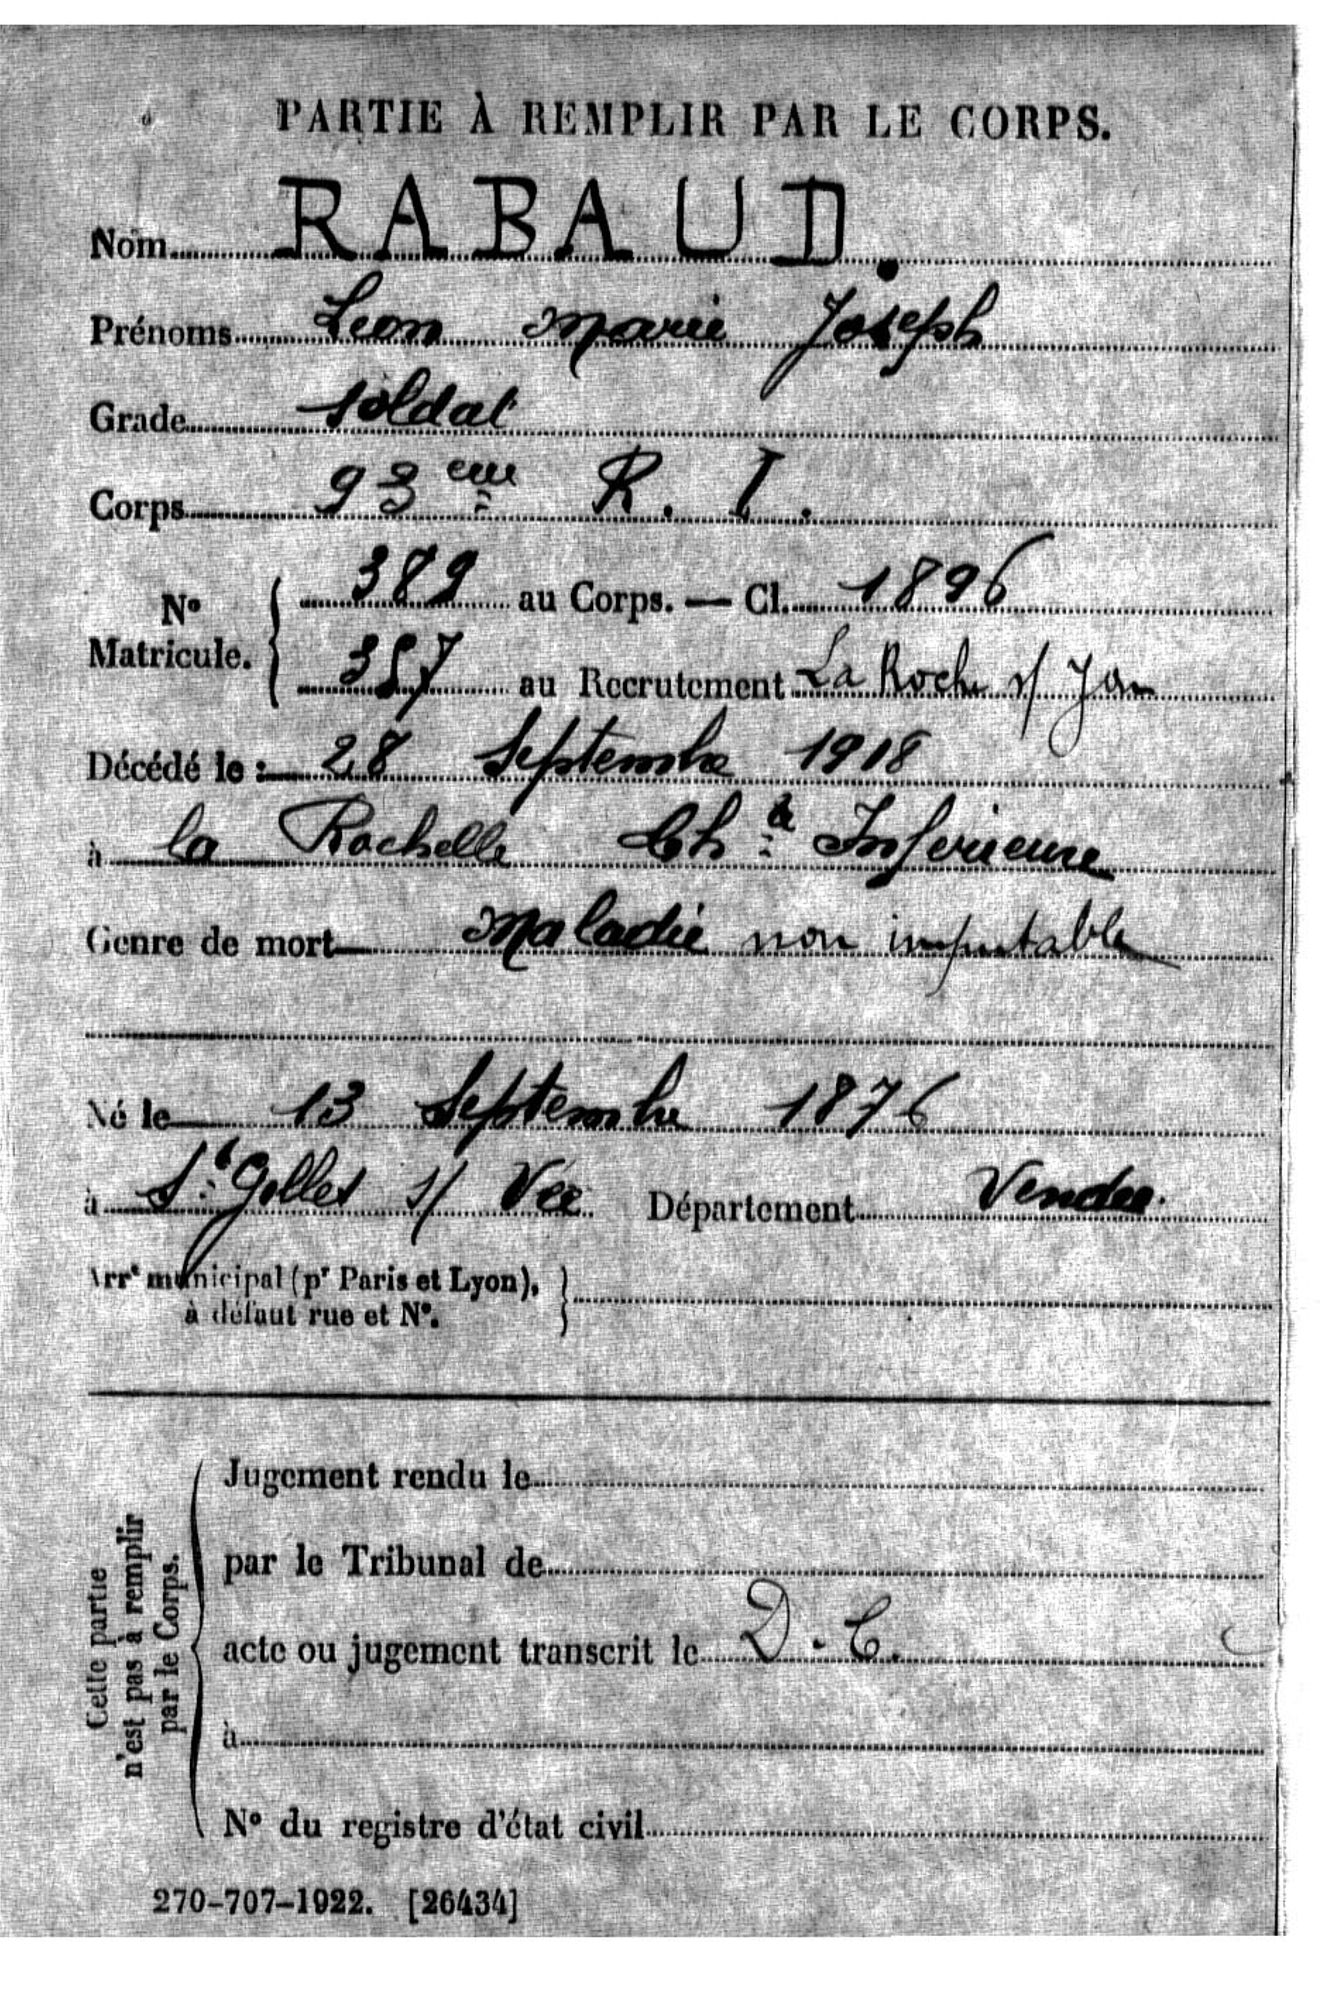 PARTIE À REMPLIR PAR LE CORPS.
Nom RABAUD.
Prénoms Léon Marie Joseph
Grade soldat
Corps 93eme R. I.
No Matricule. { 389 au Corps. — Cl. 1896
357 au Recrutement La Roche s/ Yon
Décédé le : 28 Septembre 1918
à la Rochelle Chte Inferieure
Genre de mort Maladie non imputable
Né le 13 Septembre 1876
à St Gilles s/ Vie Département Vendée.
Arrt municipal (pr Paris et Lyon), }
à défaut rue et No.
Cette partie n'est pas à remplir par le Corps.
Jugement rendu le
par le Tribunal de
acte ou jugement transcrit le D. C.
à
No du registre d'état civil
270-707-1922. [26434]